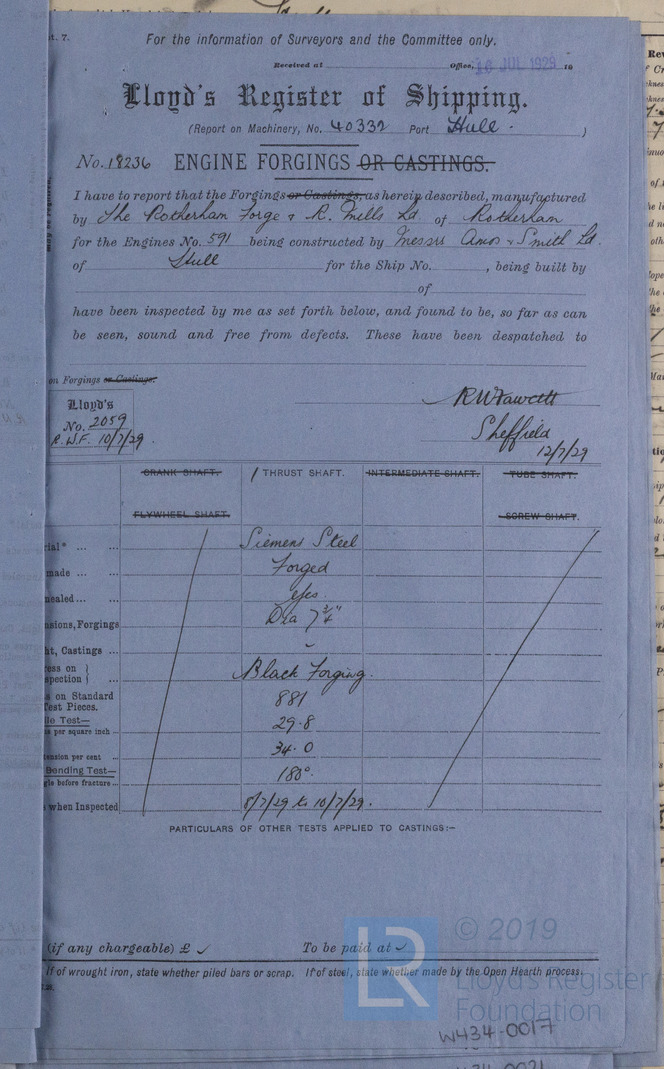 t. 7.
For the information of Surveyors and the Committee only.
Received at Office, 16 JUL 1929 19
Lloyd's Register of Shipping.
(Report on Machinery, No. 40332 Port Hull. )
No. 18236 ENGINE FORGINGS OR CASTINGS.
I have to report that the Forgings or Castings, as herein described, manufactured
by The Rotherham Forge & R. Mills Ld of Rotherham
for the Engines No. 591 being constructed by Messrs Amos & Smith Ld.
of Hull for the Ship No. , being built by
of
have been inspected by me as set forth below, and found to be, so far as can
be seen, sound and free from defects. These have been despatched to
on Forgings or Castings.
Lloyd's
No. 2059
R.W.F. 10/7/29.
RW Fawcett
Sheffield
12/7/29
CRANK SHAFT. / THRUST SHAFT. INTERMEDIATE SHAFT. TUBE SHAFT.
FLYWHEEL SHAFT. SCREW SHAFT.
rial* ... ... Siemens Steel
made ... ... Forged
nealed ... ... Yes.
nsions, Forgings Dia 7 3/4"
ht, Castings ...
ess on }
spection } ... Black Forging.
s on Standard
Test Pieces. 881
le Test—
s per square inch ... 29.8
tension per cent ... 34.0
Bending Test—
gle before fracture ... 180°.
when Inspected 8/7/29 to 10/7/29.
PARTICULARS OF OTHER TESTS APPLIED TO CASTINGS:—
(if any chargeable) £ To be paid at
If of wrought iron, state whether piled bars or scrap. If of steel, state whether made by the Open Hearth process.
LR
© 2019
Lloyd's Register
Foundation
W434-0017